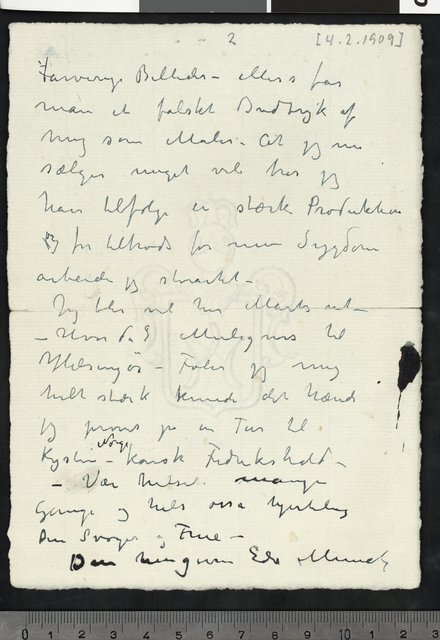 2
[4.2.1909]
farverige Billeder – ellers får
man et falskt Indtryk af
mig som Maler – At jeg nu
sælger meget ved jeg
har tilfølge en stærk Produktion
og for tiltrods for min Sygdom
arbeider jeg stærkt –
Jeg blir vel her Marts ut –
– Hvor da? Muligens til
Helsingør – Føler jeg mig
helt stærk kunde det hænde
jeg prøver på en Tur til
Kysten – Norge kanske Fredrikshald –
– Vær hilset mange
Gange og hils også hjertelig
Din Svoger og Frue –
Din hengivne Edv Munch
0 1 2 3 4 5 6 7 8 9 10 11 2